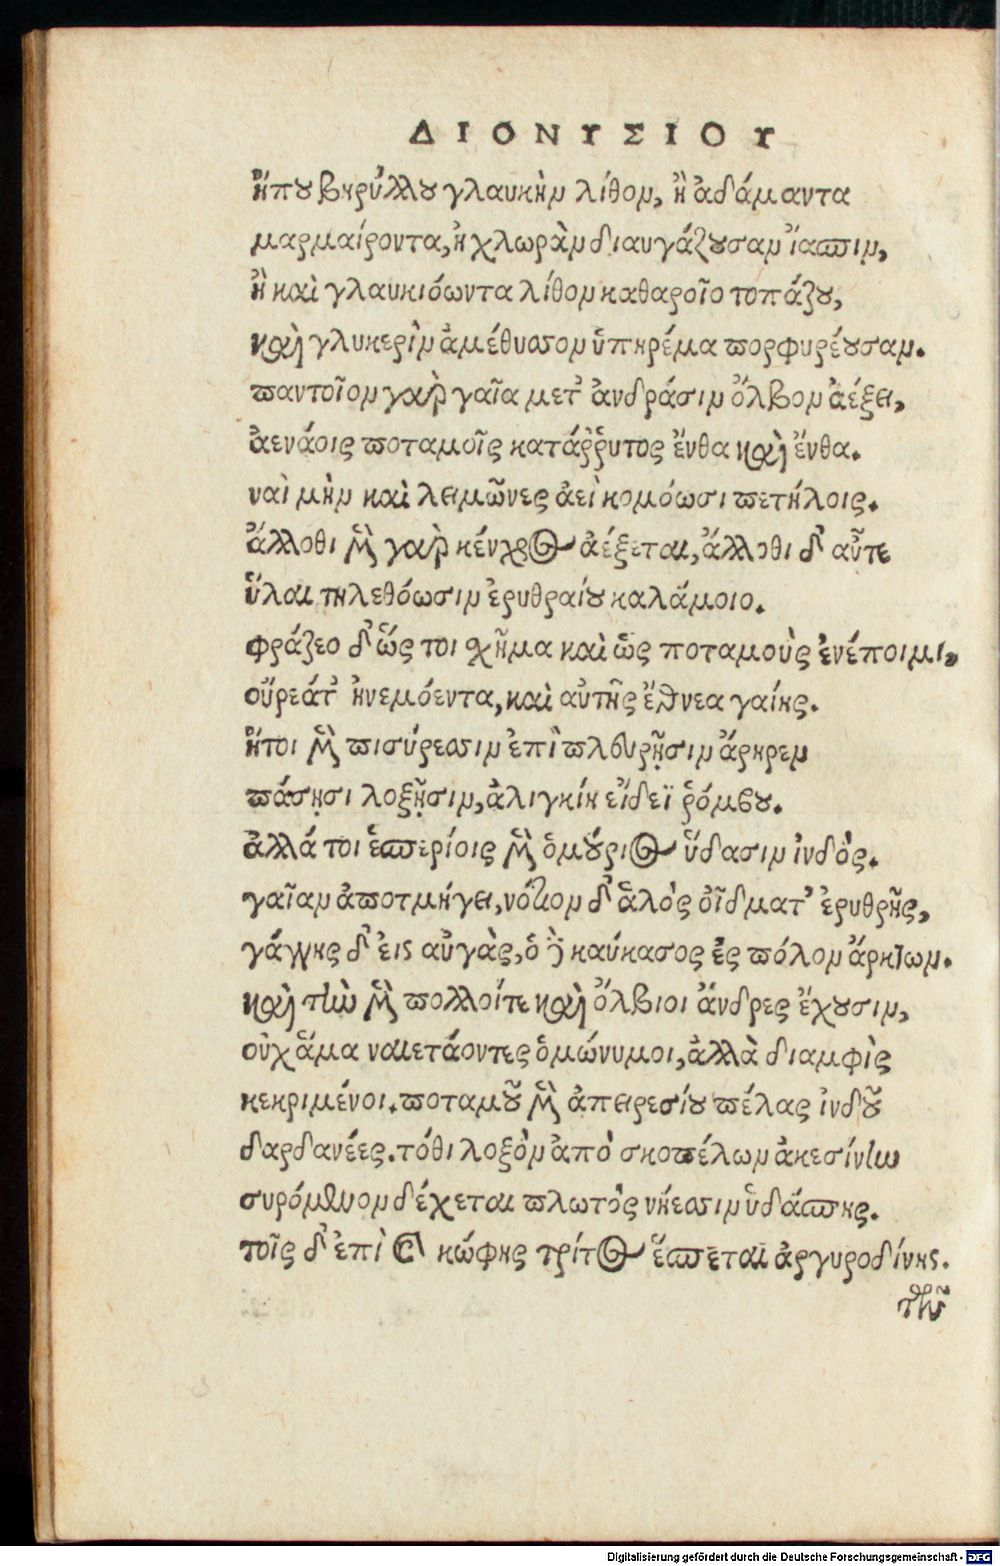 ΔΙΟΝΥΣΙΟΥ
ἤπου βηρύλλου γλαυκὴν λίθον, ἢ ἀδάμαντα
μαρμαίροντα, ἢ χλωρὰν διαυγάζουσαν ἴασπιν,
ἢ καὶ γλαυκιόωντα λίθον καθαροῖο τοπάζου,
καὶ γλυκερὶν ἀμέθυστον ὑπηρέμα πορφυρέουσαν.
παντοῖον γὰρ γαῖα μετ' ἀνδράσιν ὄλβον ἀέξει,
ἀενάοις ποταμοῖς κατάῤῥυτος ἔνθα καὶ ἔνθα.
ναὶ μὴν καὶ λειμῶνες ἀεὶ κομόωσι πετήλοις.
ἄλλοθι μὲν γὰρ κένχρος ἀέξεται, ἄλλοθι δ' αὖτε
ὗλαι τηλεθόωσιν ἐρυθραίου καλάμοιο.
φράζεο δ' ὥς τοι χῆμα καὶ ὣς ποταμοὺς ἐνέποιμι,
οὔρεάτ' ἠνεμόεντα, καὶ αὐτῆς ἔθνεα γαίης.
ἤτοι μὲν πισύρεσσιν ἐπὶ πλευρῇσιν ἄρηρεν
πάσῃσι λοξῇσιν, ἀλιγκίη εἴδεϊ ῥόμβου.
ἀλλά τοι ἑσπερίοις μὲν ὁμούριος ὕδασιν ἰνδὸς.
γαῖαν ἀποτμήγει, νότιον δ' ἁλὸς οἶδματ' ἐρυθρῆς,
γάγγης δ' εἰς αὐγὰς, ὁ δὲ καύκασος ἐς πόλον ἄρκτων.
καὶ τὴν μὲν πολλοίτε καὶ ὄλβιοι ἄνδρες ἔχουσιν,
οὐχἅμα ναιετάοντες ὁμώνυμοι, ἀλλὰ διαμφὶς
κεκριμένοι. ποταμοῦ μὲν ἀπειρεσίου πέλας ἰνδοῦ
δαρδανέες. τόθι λοξὸν ἀπὸ σκοπέλων ἀκεσίνην
συρόμενον δέχεται πλωτὸς νήεσσιν ὑδάσπης.
τοῖς δ' ἐπὶ κώφης τρίτος ἕσπεται ἀργυροδίνης.
τῶν
Digitalisierung gefördert durch die Deutsche Forschungsgemeinschaft - DFG